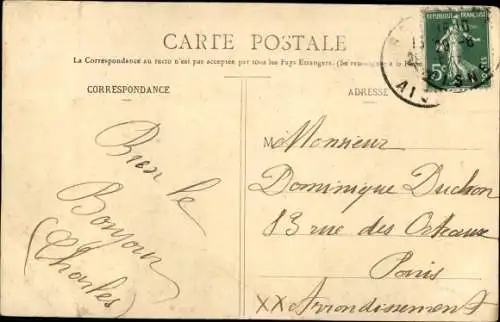 CARTE POSTALE
La Correspondance au recto n'est pas acceptée par tous les Pays Etrangers. (Se renseigner à la Poste
CORRESPONDANCE
ADRESSE
REPUBLIQUE FRANÇAISE
5
Bien le
Bonjour
(Charles)
Monsieur
Dominique Duchon
83 rue des Orteaux
Paris
XX Arrondissement